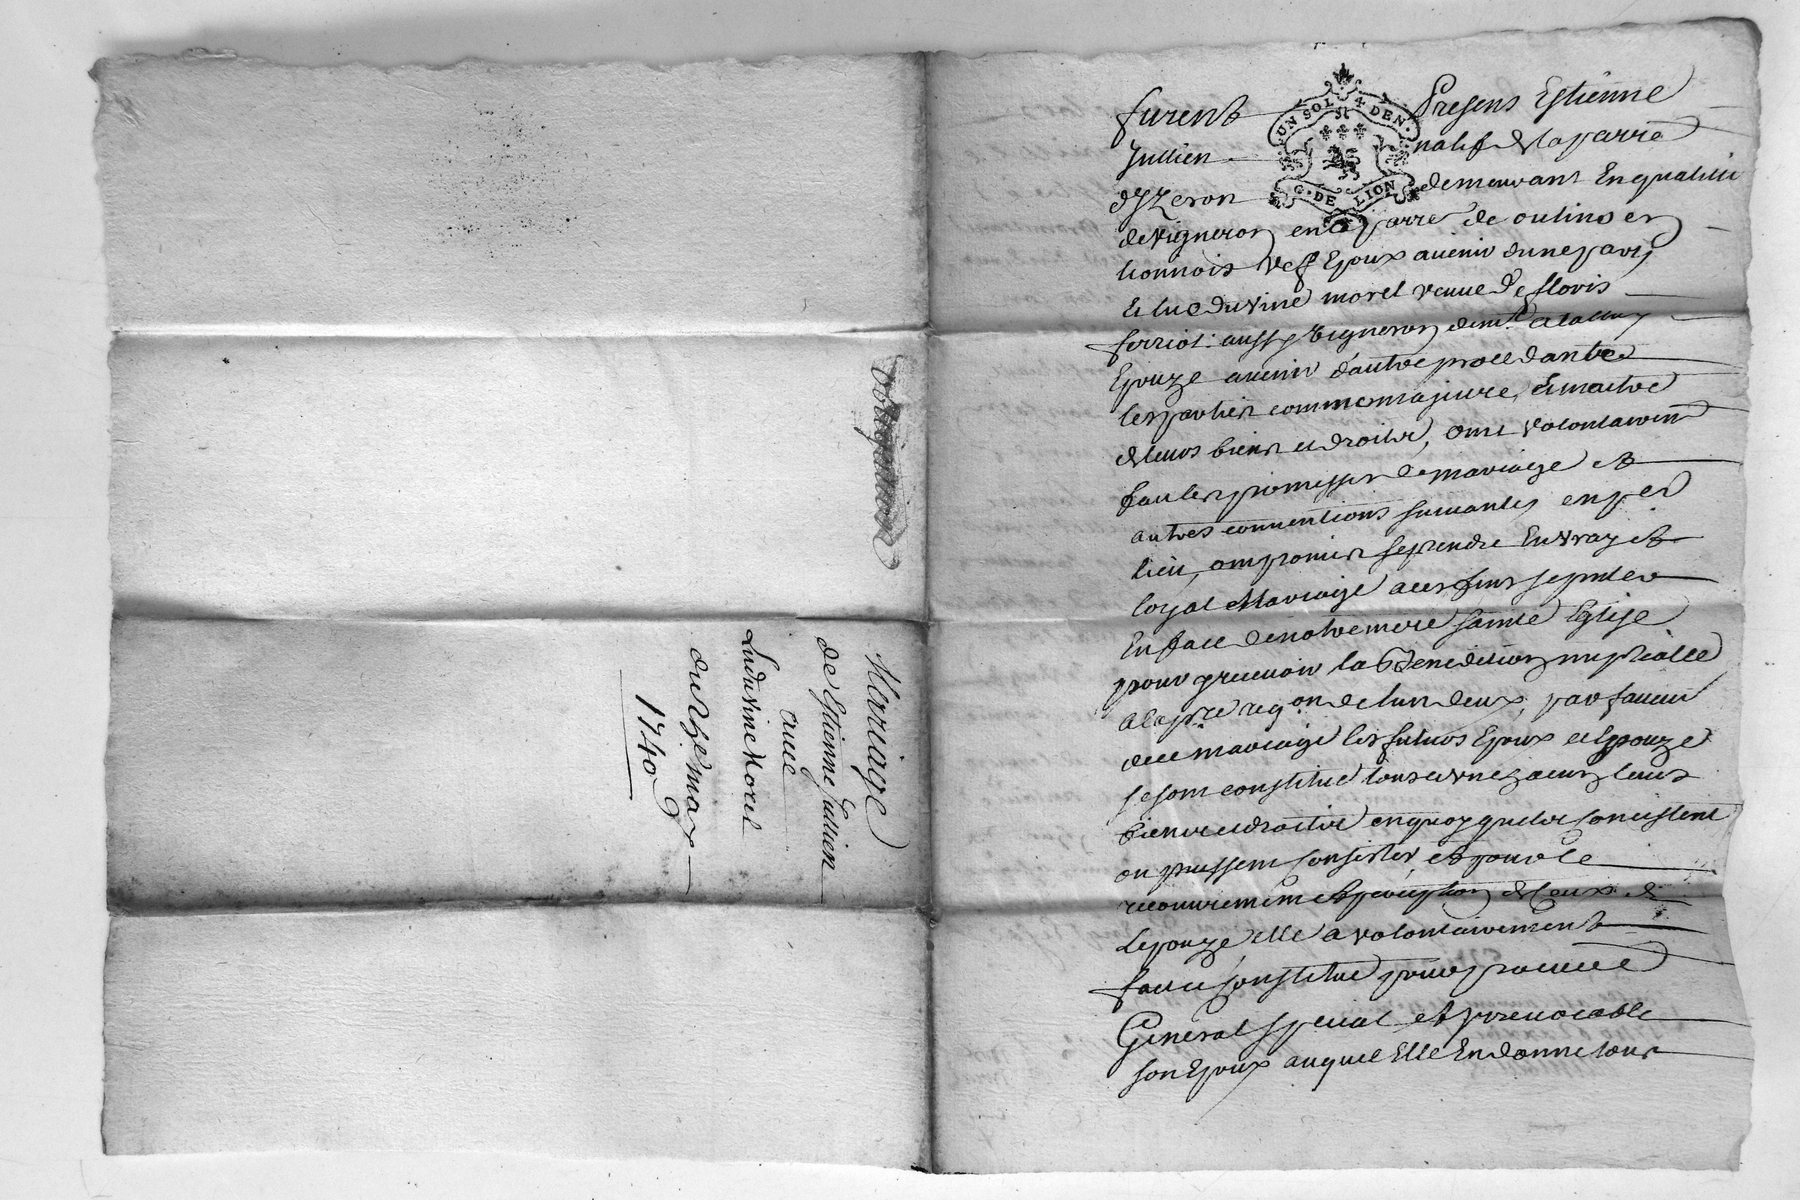 Mariage
de Estienne Jullien
avec
Ludvine Morel
du 25e may
1740
UN SOL 4 DEN.
G. DE LION
furent Presens Estienne
Jullien natif de la parre
d'Yzeron demeurant En qualité
de vigneron en parre de oulins en
lionnois Vef Epoux avenir d'une part
Et ludivine morel veuve De
ferriol aussy vigneron demt
Epouze avenir d'autre procedantes
les parties comme majeure, Et maitre
de leurs biens et droits, ont volontairemt
fait les promesses de mariage et
autres conventions suivantes en per
lieu, ont promis se prendre En vray et
loyal Mariage a ces fins se
En face de notre mere sainte Eglise
pour y recevoir la Benediction nuptialle
a la pre reqon de l'un d'eux, par faveur
de ce mariage les futurs Epoux et Epouze
se sont constitué tous et un chacun leurs
biens et droits en quoy qu'ils consistent
ou puissent consister et pour le
recouvrement et perception de Ceux de
L'epouze elle a volontairement
fait et constitué pour procureur
General special et irrevocable
son Epoux auquel Elle En donne tout